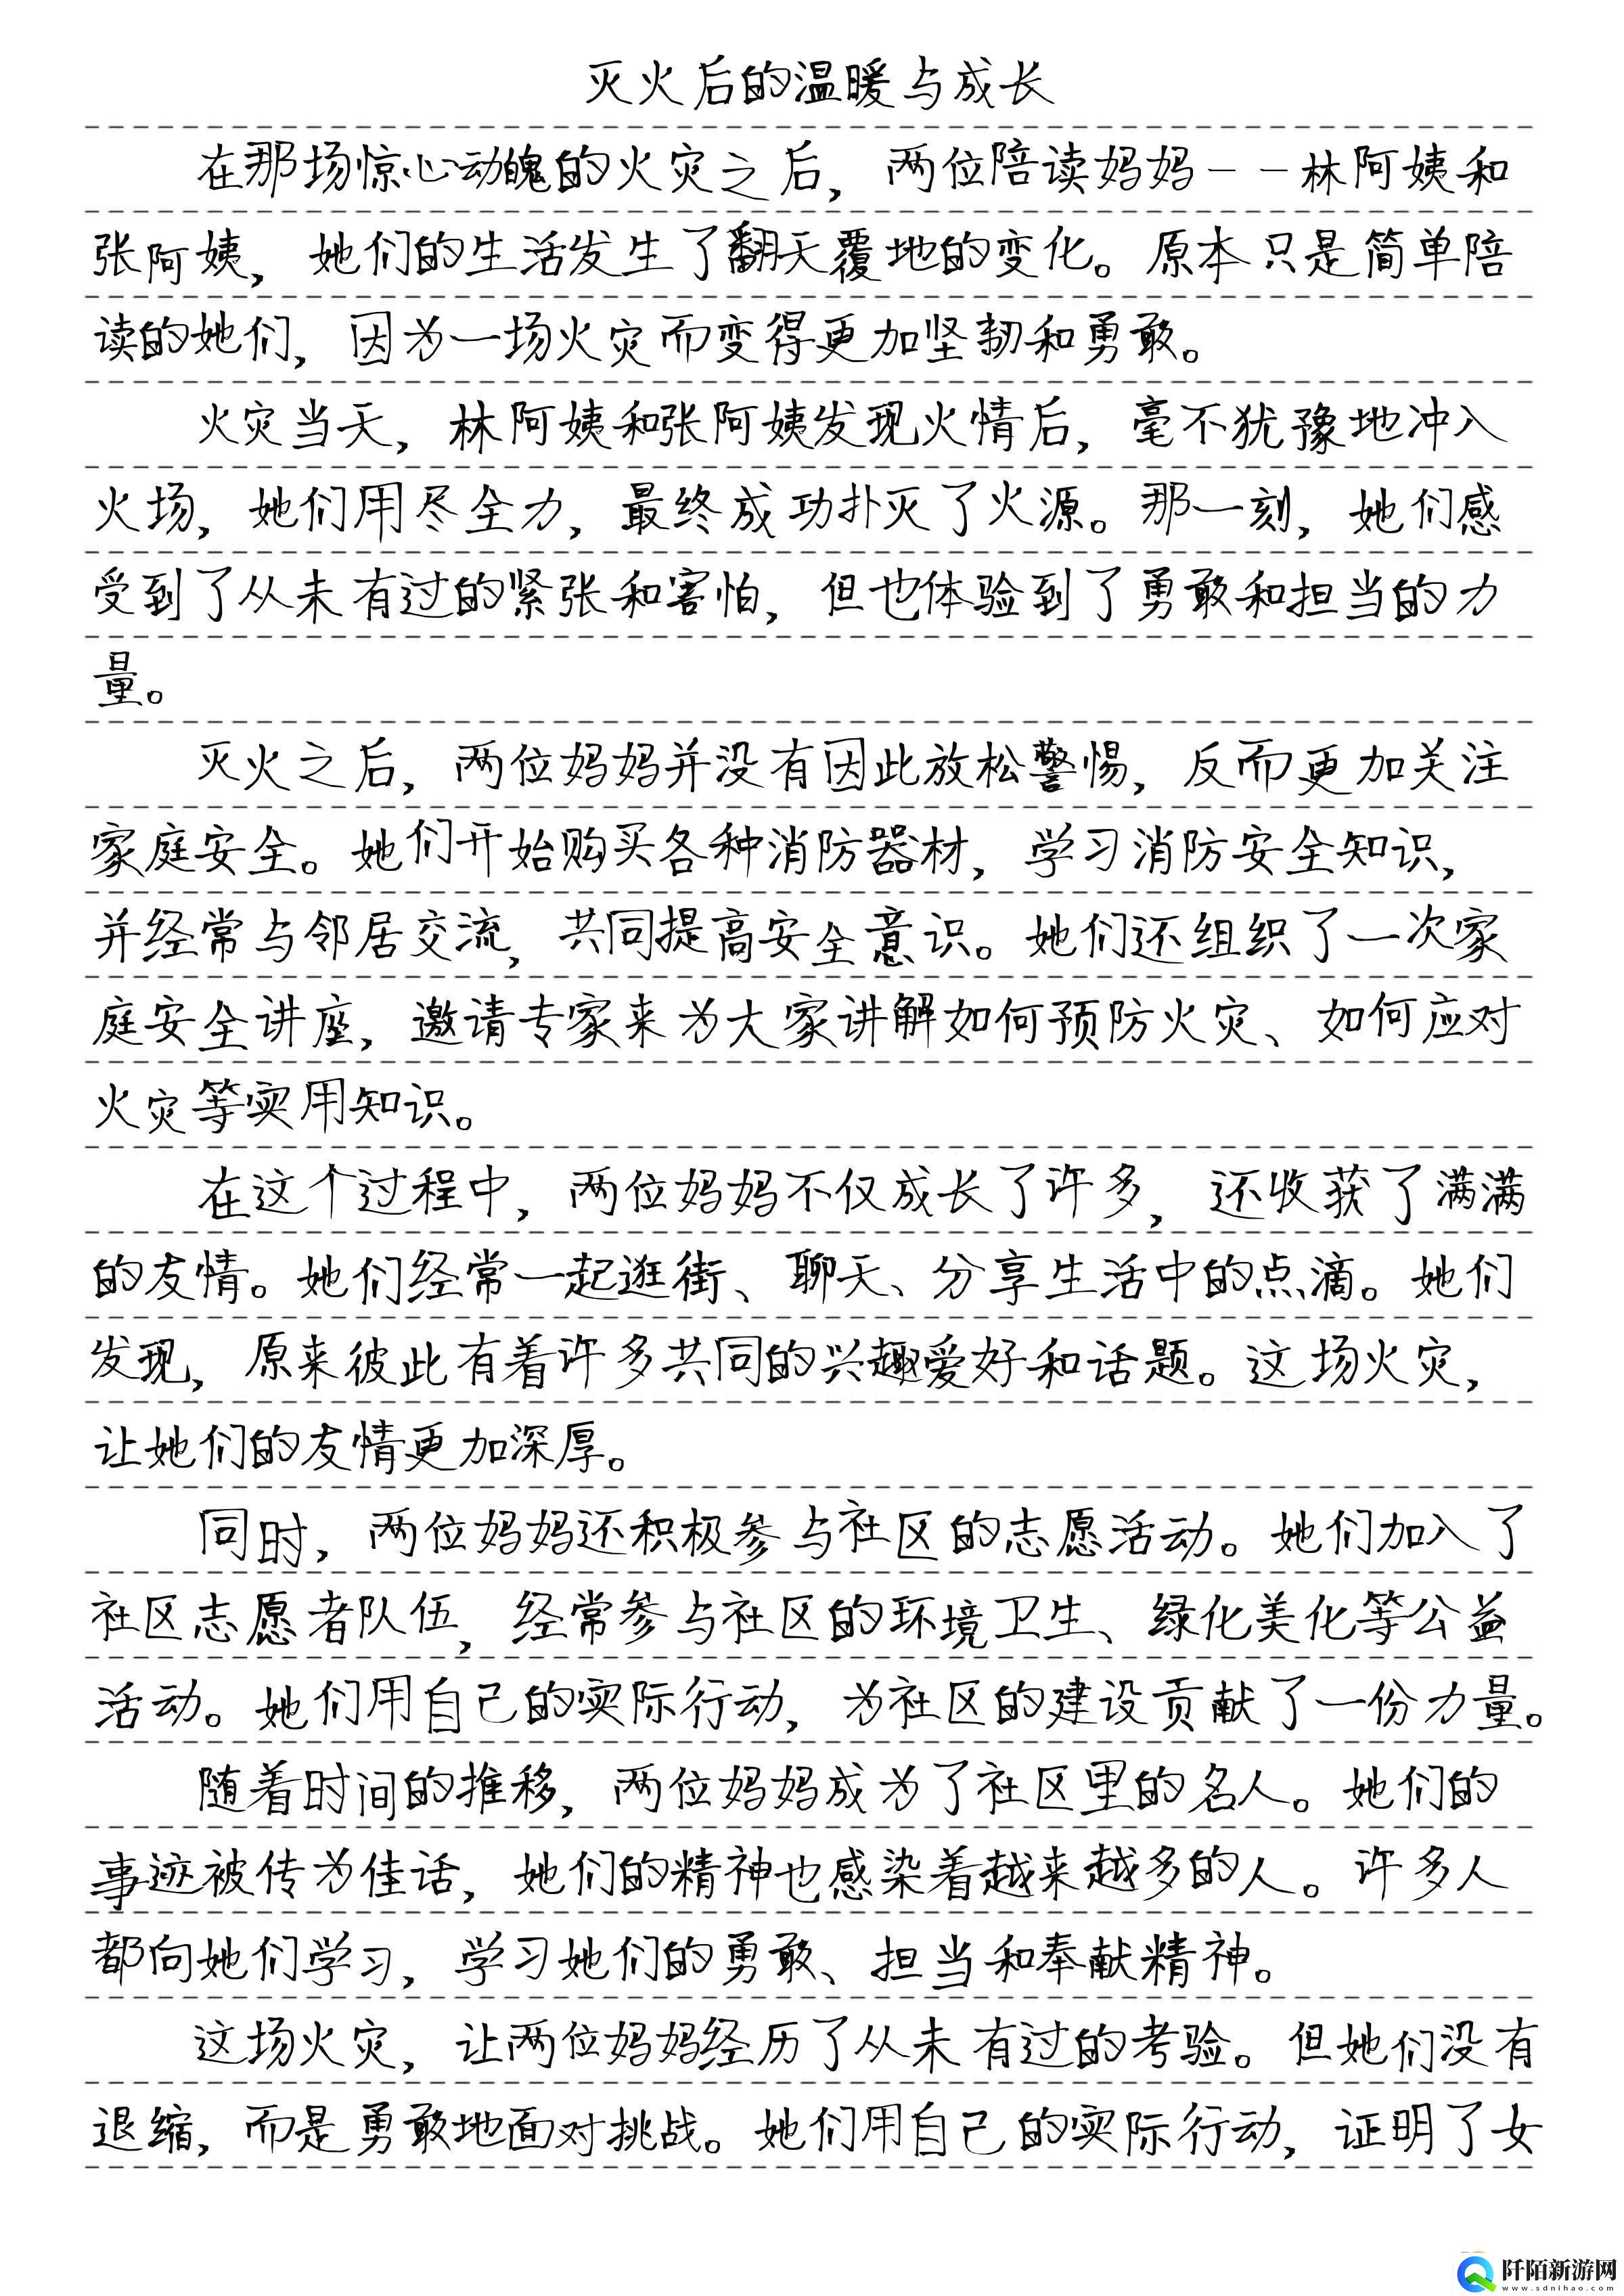 灭火后的温暖与成长
在那场惊心动魄的火灾之后，两位陪读妈妈--林阿姨和
张阿姨，她们的生活发生了翻天覆地的变化。原本只是简单陪
读的她们，因为一场火灾而变得更加坚韧和勇敢。
火灾当天，林阿姨和张阿姨发现火情后，毫不犹豫地冲入
火场，她们用尽全力，最终成功扑灭了火源。那一刻，她们感
受到了从未有过的紧张和害怕，但也体验到了勇敢和担当的力
量。
灭火之后，两位妈妈并没有因此放松警惕，反而更加关注
家庭安全。她们开始购买各种消防器材，学习消防安全知识，
并经常与邻居交流，共同提高安全意识。她们还组织了一次家
庭安全讲座，邀请专家来为大家讲解如何预防火灾、如何应对
火灾等实用知识。
在这个过程中，两位妈妈不仅成长了许多，还收获了满满
的友情。她们经常一起逛街、聊天、分享生活中的点滴。她们
发现，原来彼此有着许多共同的兴趣爱好和话题。这场火灾，
让她们的友情更加深厚。
同时，两位妈妈还积极参与社区的志愿活动。她们加入了
社区志愿者队伍，经常参与社区的环境卫生、绿化美化等公益
活动。她们用自己的实际行动，为社区的建设贡献了一份力量。
随着时间的推移，两位妈妈成为了社区里的名人。她们的
事迹被传为佳话，她们的精神也感染着越来越多的人。许多人
都向她们学习，学习她们的勇敢、担当和奉献精神。
这场火灾，让两位妈妈经历了从未有过的考验。但她们没有
退缩，而是勇敢地面对挑战。她们用自己的实际行动，证明了女
阡陌新游网
www.sdnihao.com